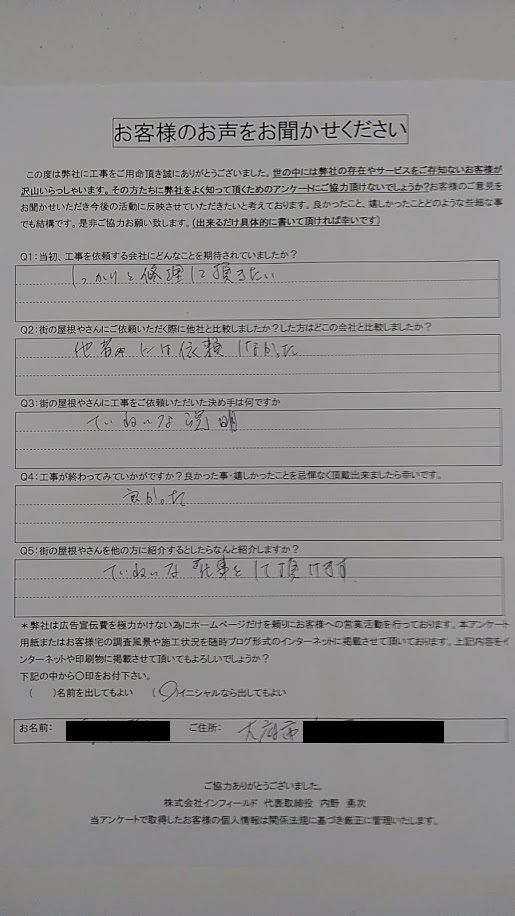 お客様のお声をお聞かせください
この度は弊社に工事をご用命頂き誠にありがとうございました。世の中には弊社の存在やサービスをご存知ないお客様が
沢山いらっしゃいます。その方たちに弊社をよく知って頂くためのアンケートにご協力頂けないでしょうか?お客様のご意見を
お聞かせいただき今後の活動に反映させていただきたいと考えております。良かったこと、嬉しかったことどのような些細な事
でも結構です。是非ご協力お願い致します。(出来るだけ具体的に書いて頂ければ幸いです)
Q1:当初、工事を依頼する会社にどんなことを期待されていましたか?
しっかりと修理して頂きたい
Q2:街の屋根やさんにご依頼いただく際に他社と比較しましたか?した方はどこの会社と比較しましたか?
には依頼しなかった
Q3:街の屋根やさんに工事をご依頼いただいた決め手は何ですか
ていねいな説明
Q4:工事が終わってみていかがですか?良かった事・嬉しかったことを忌憚なく頂戴出来ましたら幸いです。
良かった
Q5:街の屋根やさんを他の方に紹介するとしたらなんと紹介しますか?
ていねいな仕事をして頂けます
*弊社は広告宣伝費を極力かけない為にホームページだけを頼りにお客様への営業活動を行っております。本アンケート
用紙またはお客様宅の調査風景や施工状況を随時ブログ形式のインターネットに掲載させて頂いております。上記内容をイ
ンターネットや印刷物に掲載させて頂いてもよろしいでしょうか?
下記の中から〇印をお付下さい。
( )名前を出してもよい (〇)イニシャルなら出してもよい
お名前: ご住所: 大府市
ご協力ありがとうございました。
株式会社インフィールド 代表取締役 内野 勇次
当アンケートで取得したお客様の個人情報は関係法規に基づき厳正に管理いたします。